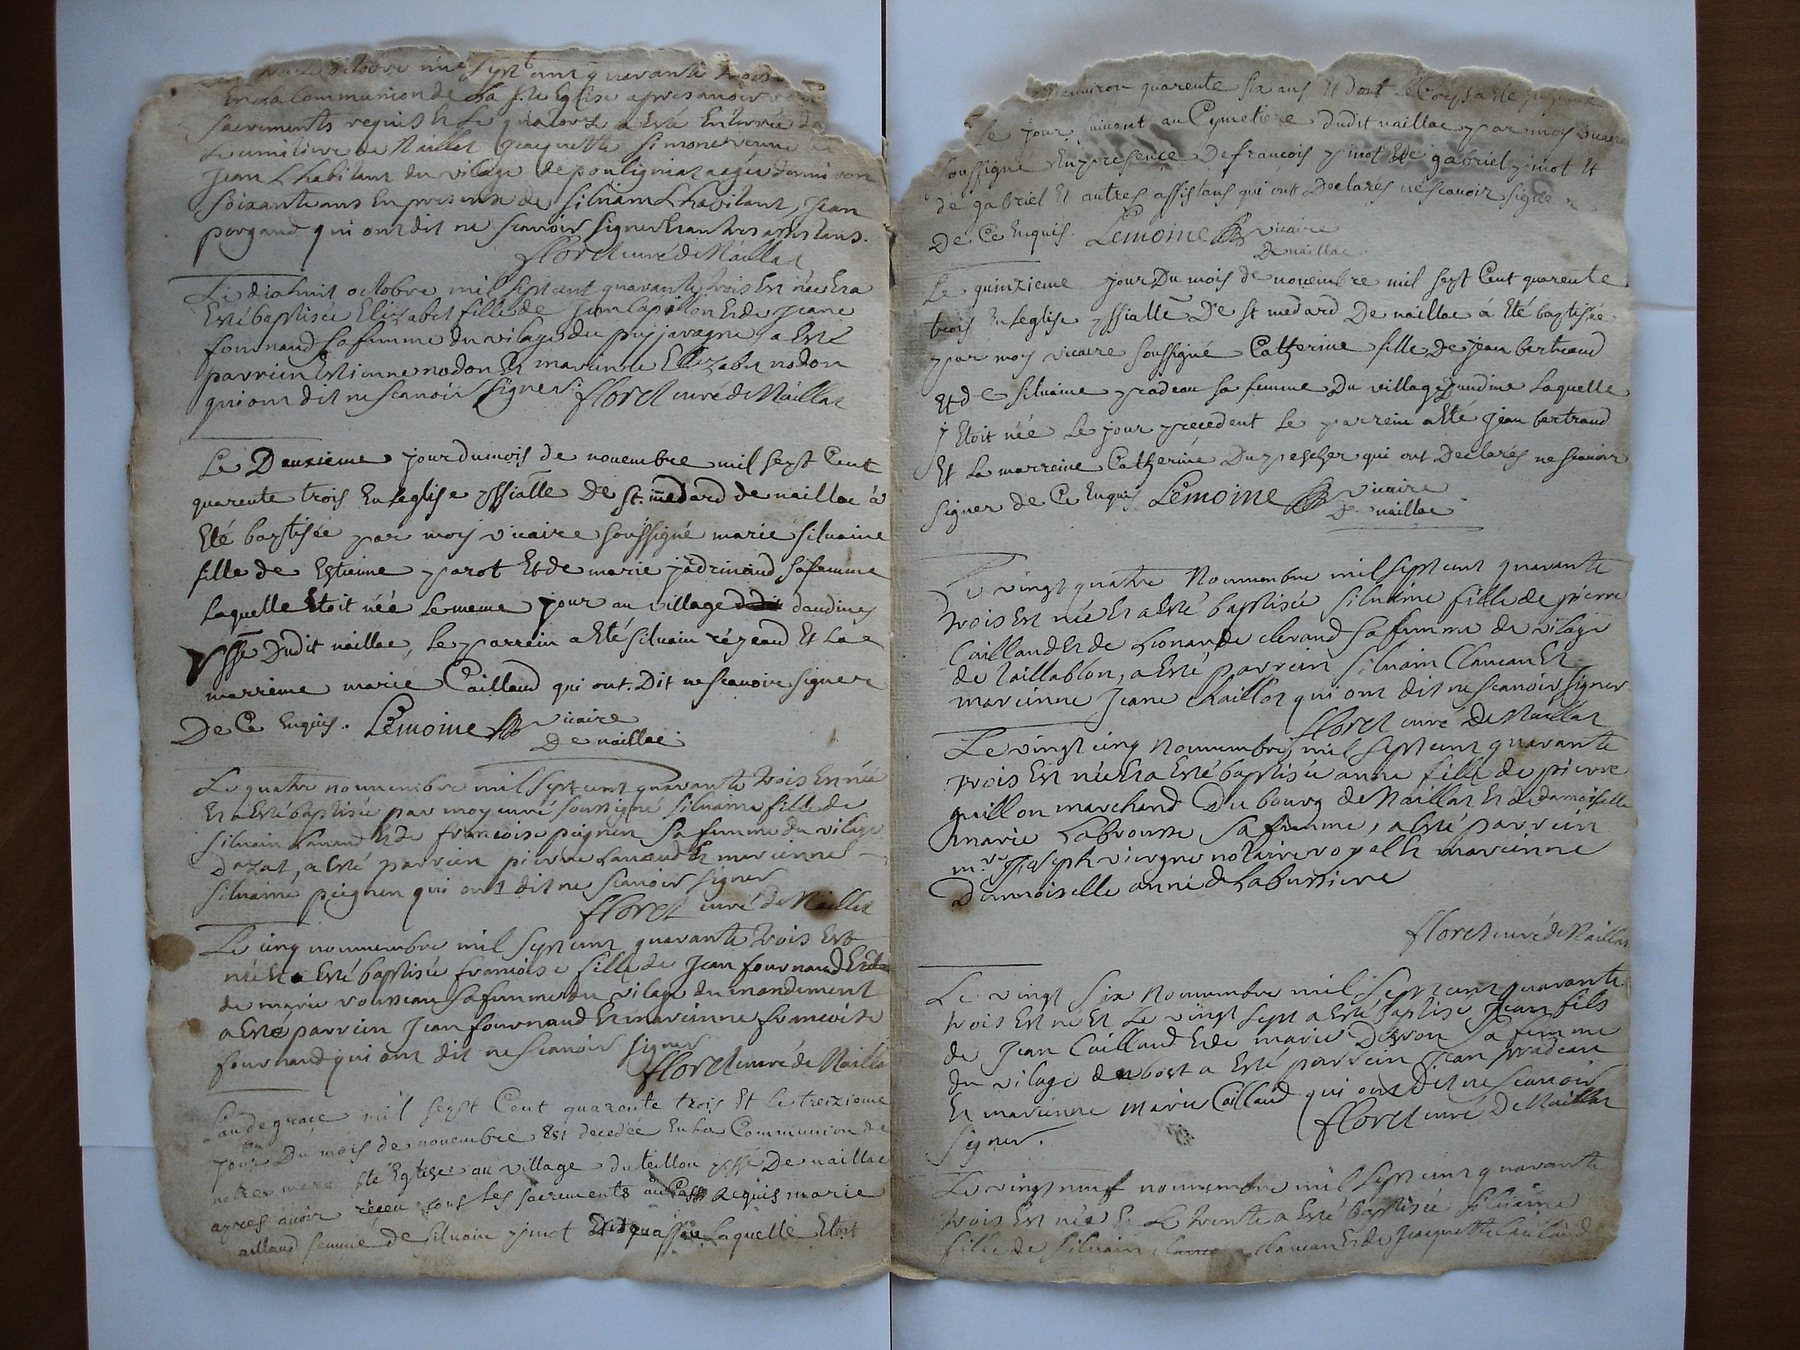 octobre mil sept cent quarante trois
En La Communion de La Ste Eglise apres avoir
sacrements requis Et Le quatorze a Esté Enterrée
Le cimitiere de Naillat Jacquette Simonet veuve
Jean Lhabitant du vilage de pouligniat agée denviron
soixante ans En presence de silvain Lhabitant, Jean
pergaud qui ont dit ne scavoir signer Et autres assistans.
floret curé de Naillat
Le dixhuit octobre mil sept cent quarante trois Est née Et a
Esté baptisée Elizabet fille de Jean Capillon Et de Jeane
fournaud sa femme du vilage du puyjavagne a Esté
parrein Estienne nodon Et mareinne Ellizabet nodon
qui ont dit ne scavoir signer. floret curé de Naillat
Le Deuxieme jour du mois de novembre mil sept Cent
quarente trois En Leglise pssialle De St. medard de naillac à
Eté baptisée par moy vicaire soussigné marie silvaine
fille de Estienne parot Et de marie jadrinaud sa femme
Laquelle Etoit née Le meme jour au village daudines
psse Dudit naillac, le parrein a Eté silvain rézeaud Et La
marreine marie Caillaud qui ont Dit ne scavoir signer
De Ce Enquis. Lemoine vicaire
De naillac
Le quatre nouvembre mil sept cent quarante trois Est née
Et a Esté baptisée par moy curé soussigné silvaine fille de
silvain Lanaud Et de francoise peignen sa femme du vilage
Dazat, a Esté parrein pierre Lanaud Et mareinne
silvaine peignen qui ont dit ne scavoir signer
floret curé de Naillat
Le cinq nouvembre mil sept cent quarante trois Est
née Et a Esté baptisée francoise fille de Jean fournaud Et de
de marie rousseau sa femme du vilage du mandement
a Esté parrein Jean fournaud Et mareinne francoise
fournaud qui ont dit ne scavoir signer
floret curé de Naillat
Lan de grace mil sept Cent quarente trois Et le treizieme
jour Du mois de novembre Est decedée En La Communion de
notre mere Ste Eglise au village du teillou psse De naillac
apres avoir réceu tous Les sacrements au Cas Requis marie
aillaud femme de silvain pinot Laquelle Etoit
Denviron quarente six ans Et dont le Corps a Eté
Le jour suivant au Cymetiere dudit naillac par moy vicaire
soussigné En presence De francois pinot Et de gabriel pinot Et
de gabriel Et autres assistans qui ont Declarés ne scavoir signer
De Ce Enquis. Lemoine vicaire
De naillac
Le quinzieme jour Du mois de novembre mil sept Cent quarente
trois En Leglise pssialle De St medard De naillac à Eté baptisée
par moy vicaire soussigné Catherine fille De jean bertraud
Et de silvaine pradeau sa femme Du village Daudine Laquelle
Etoit née Le jour precedent Le parrein a Eté jean bertraud
Et La marreine Catherine Dupescher qui ont Declarés ne scavoir
signer de Ce Enquis Lemoine vicaire
De naillac
Le vingt quatre Nouvembre mil sept cent quarante
trois Est née Et a Esté baptisée silvaine fille de pierre
Caillaud Et de Lionarde cleraud sa femme du vilage
de taillablon, a Esté parrein silvain Claveau Et
mareinne Jeane Chaillot qui ont dit ne scavoir signer
floret curé De Naillat
Le vingt cinq Nouvembre mil sept cent quarante
trois Est née Et a Esté baptisée anne fille de pierre
guillon marchand Du bourg de Naillat Et de damoiselle
marie Labrousse sa femme, a Esté parrein
mre Joseph viergne notaire royal Et mareinne
Damoiselle anne de Labussiere
floret curé de Naillat
Le vingt six Nouvembre mil sept cent quarante
trois Est né Et Le vingt sept a Esté baptisé Jean fils
de Jean Caillaud Et de marie Deyron sa femme
du vilage du bost a Esté parrein Jean pradeau
Et mareinne marie Caillaud qui ont dit ne scavoir
signer. floret curé De Naillat
Le vingt neuf nouvembre mil sept cent quarante
trois Est née Et Le trente a Esté baptisée silvaine
fille de silvain claveau Et de Jacquette Caillaud